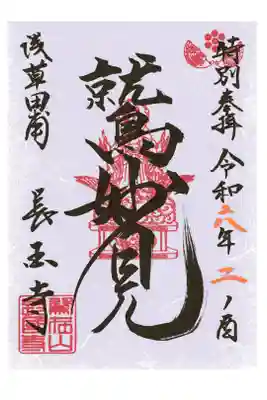 特別奉拝 令和六年 二ノ酉
鷲妙見
浅草田甫 長国寺